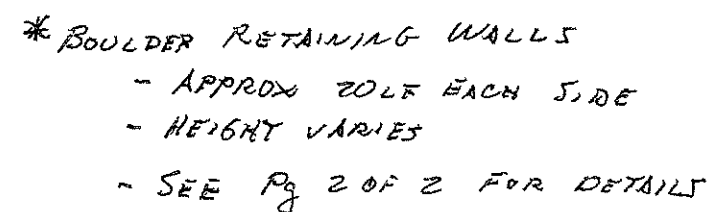 * BOULDER RETAINING WALLS
- APPROX 20LF EACH SIDE
- HEIGHT VARIES
- SEE Pg 2 OF 2 FOR DETAILS